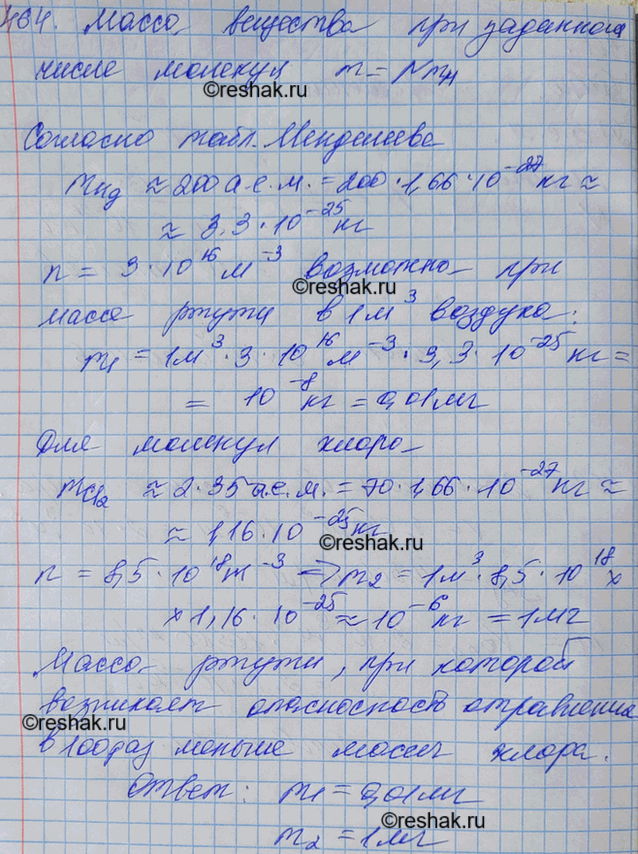 464. Масса вещества при заданном
числе молекул m = Nm
©reshak.ru
Согласно табл. Менделеева
mHg ≈ 200 а.е.м. = 200·1,66·10⁻²⁷кг ≈
≈ 3,3·10⁻²⁵кг
n = 3·10¹⁶ м⁻³ возможно при
©reshak.ru
массе ртути в 1м³ воздуха:
m₁ = 1м³·3·10¹⁶м⁻³·3,3·10⁻²⁵кг =
= 10⁻⁸кг = 0,01мг
Для молекул хлора
mCl₂ ≈ 2·35 а.е.м. = 70·1,66·10⁻²⁷кг ≈
≈ 1,16·10⁻²⁵кг
©reshak.ru
n = 8,5·10¹⁸м⁻³ => m₂ = 1м³·8,5·10¹⁸ ×
× 1,16·10⁻²⁵ ≈ 10⁻⁶кг = 1мг
Масса ртути, при которой
возникает опасность отравления
©reshak.ru
в 100 раз меньше массы хлора.
Ответ: m₁ = 0,01мг
©reshak.ru
m₂ = 1мг